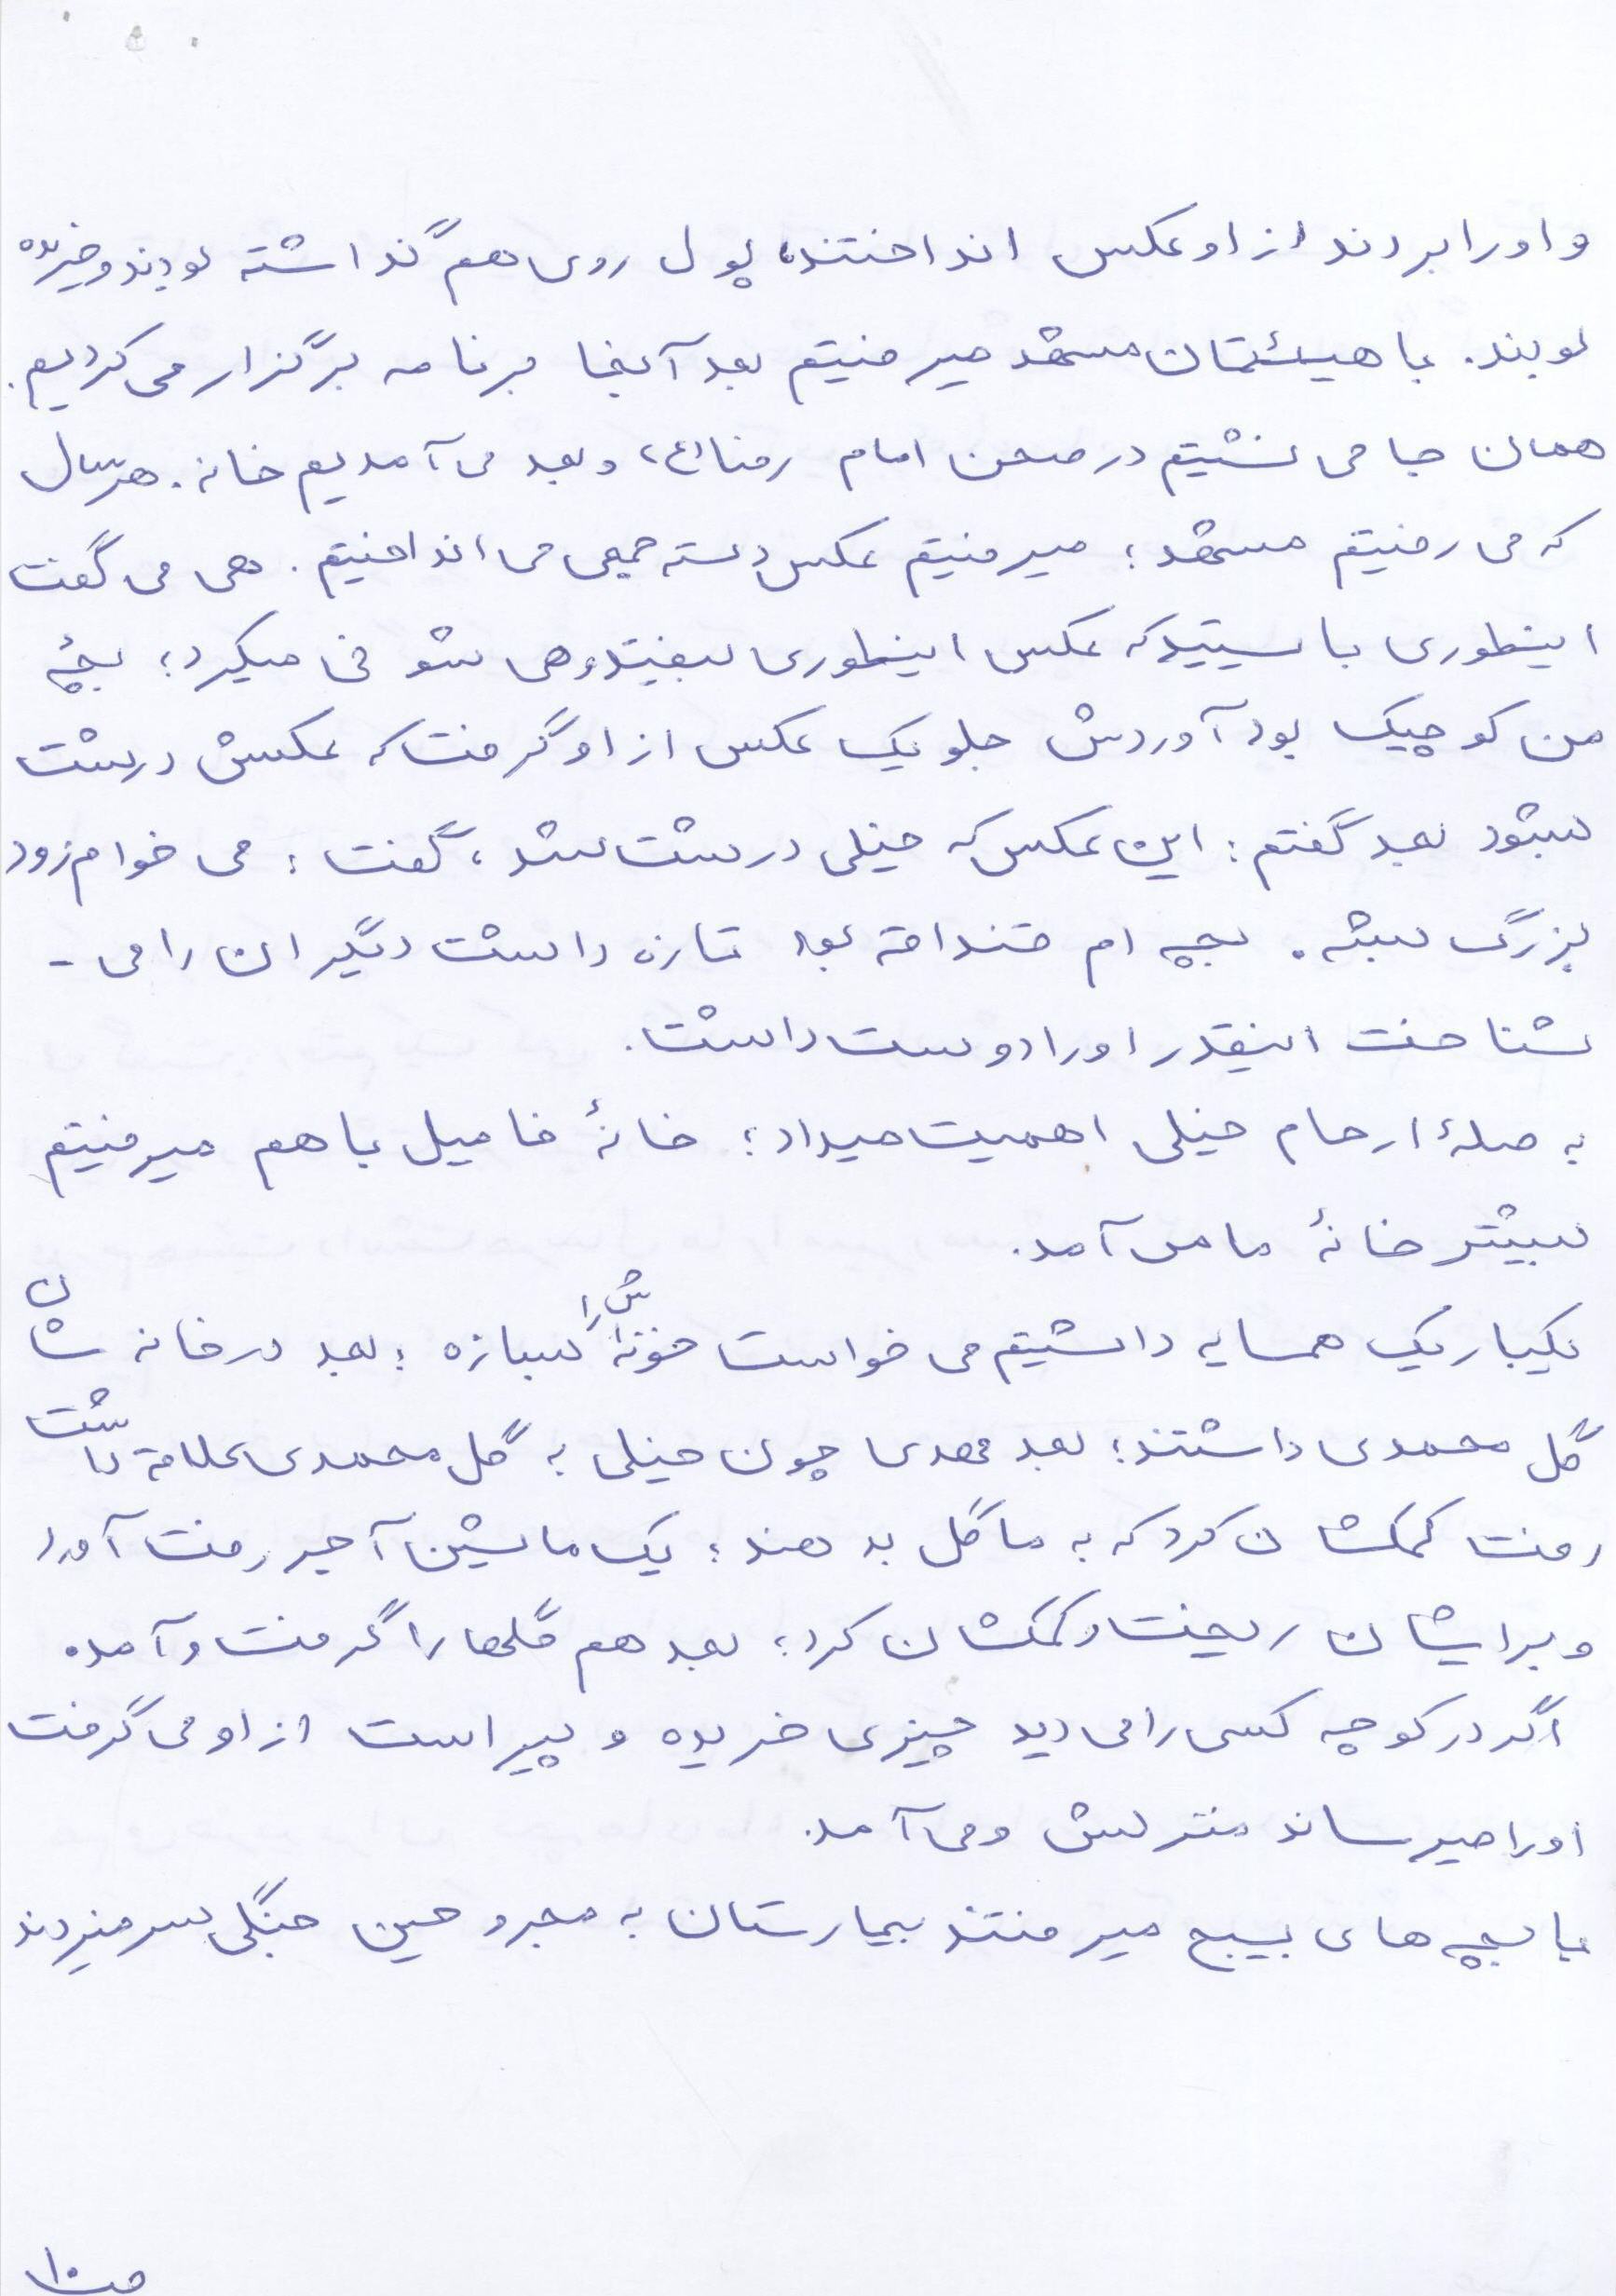 و او را بردند از او عکس انداختند، پول روی هم گذاشته بودند و خریده
بودند. با هیئتمان مشهد میرفتیم بعد آنجا برنامه برگزار می کردیم.
همان جا می نشستیم در صحن امام رضا(ع)، و بعد می آمدیم خانه. هر سال
که می رفتیم مشهد؛ میرفتیم عکس دسته جمعی می انداختیم. هی می گفت
اینطوری بایستید که عکس اینطوری بیفتد و هی شوخی میکرد؛ بچهٔ
من کوچیک بود آوردش جلو یک عکس از او گرفت که عکسش درشت
بشود بعد گفتم: این عکس که خیلی درشت شد، گفت: می خوام زود
بزرگ بشه. بچه ام قنداقه بود تازه داشت دیگران را می -
شناخت اینقدر او را دوست داشت.
به صلهٔ ارحام خیلی اهمیت میداد؛ خانهٔ فامیل با هم میرفتیم
بیشتر خانهٔ ما می آمد.
یکبار یک همسایه داشتیم می خواست خونه اش را بسازه؛ بعد در خانه شان
گل محمدی داشتند؛ بعد مهدی چون خیلی به گل محمدی علاقه داشت
رفت کمکشان کرد که به ما گل بدهند؛ یک ماشین آجر رفت آورد
و برایشان ریخت و کمکشان کرد؛ بعد هم گلها را گرفت و آمد.
اگر در کوچه کسی را می دید چیزی خریده و پیر است از او می گرفت
او را میرساند منزلش و می آمد.
با بچه های بسیج میرفتند بیمارستان به مجروحین جنگی سر میزدند
ص۱۰